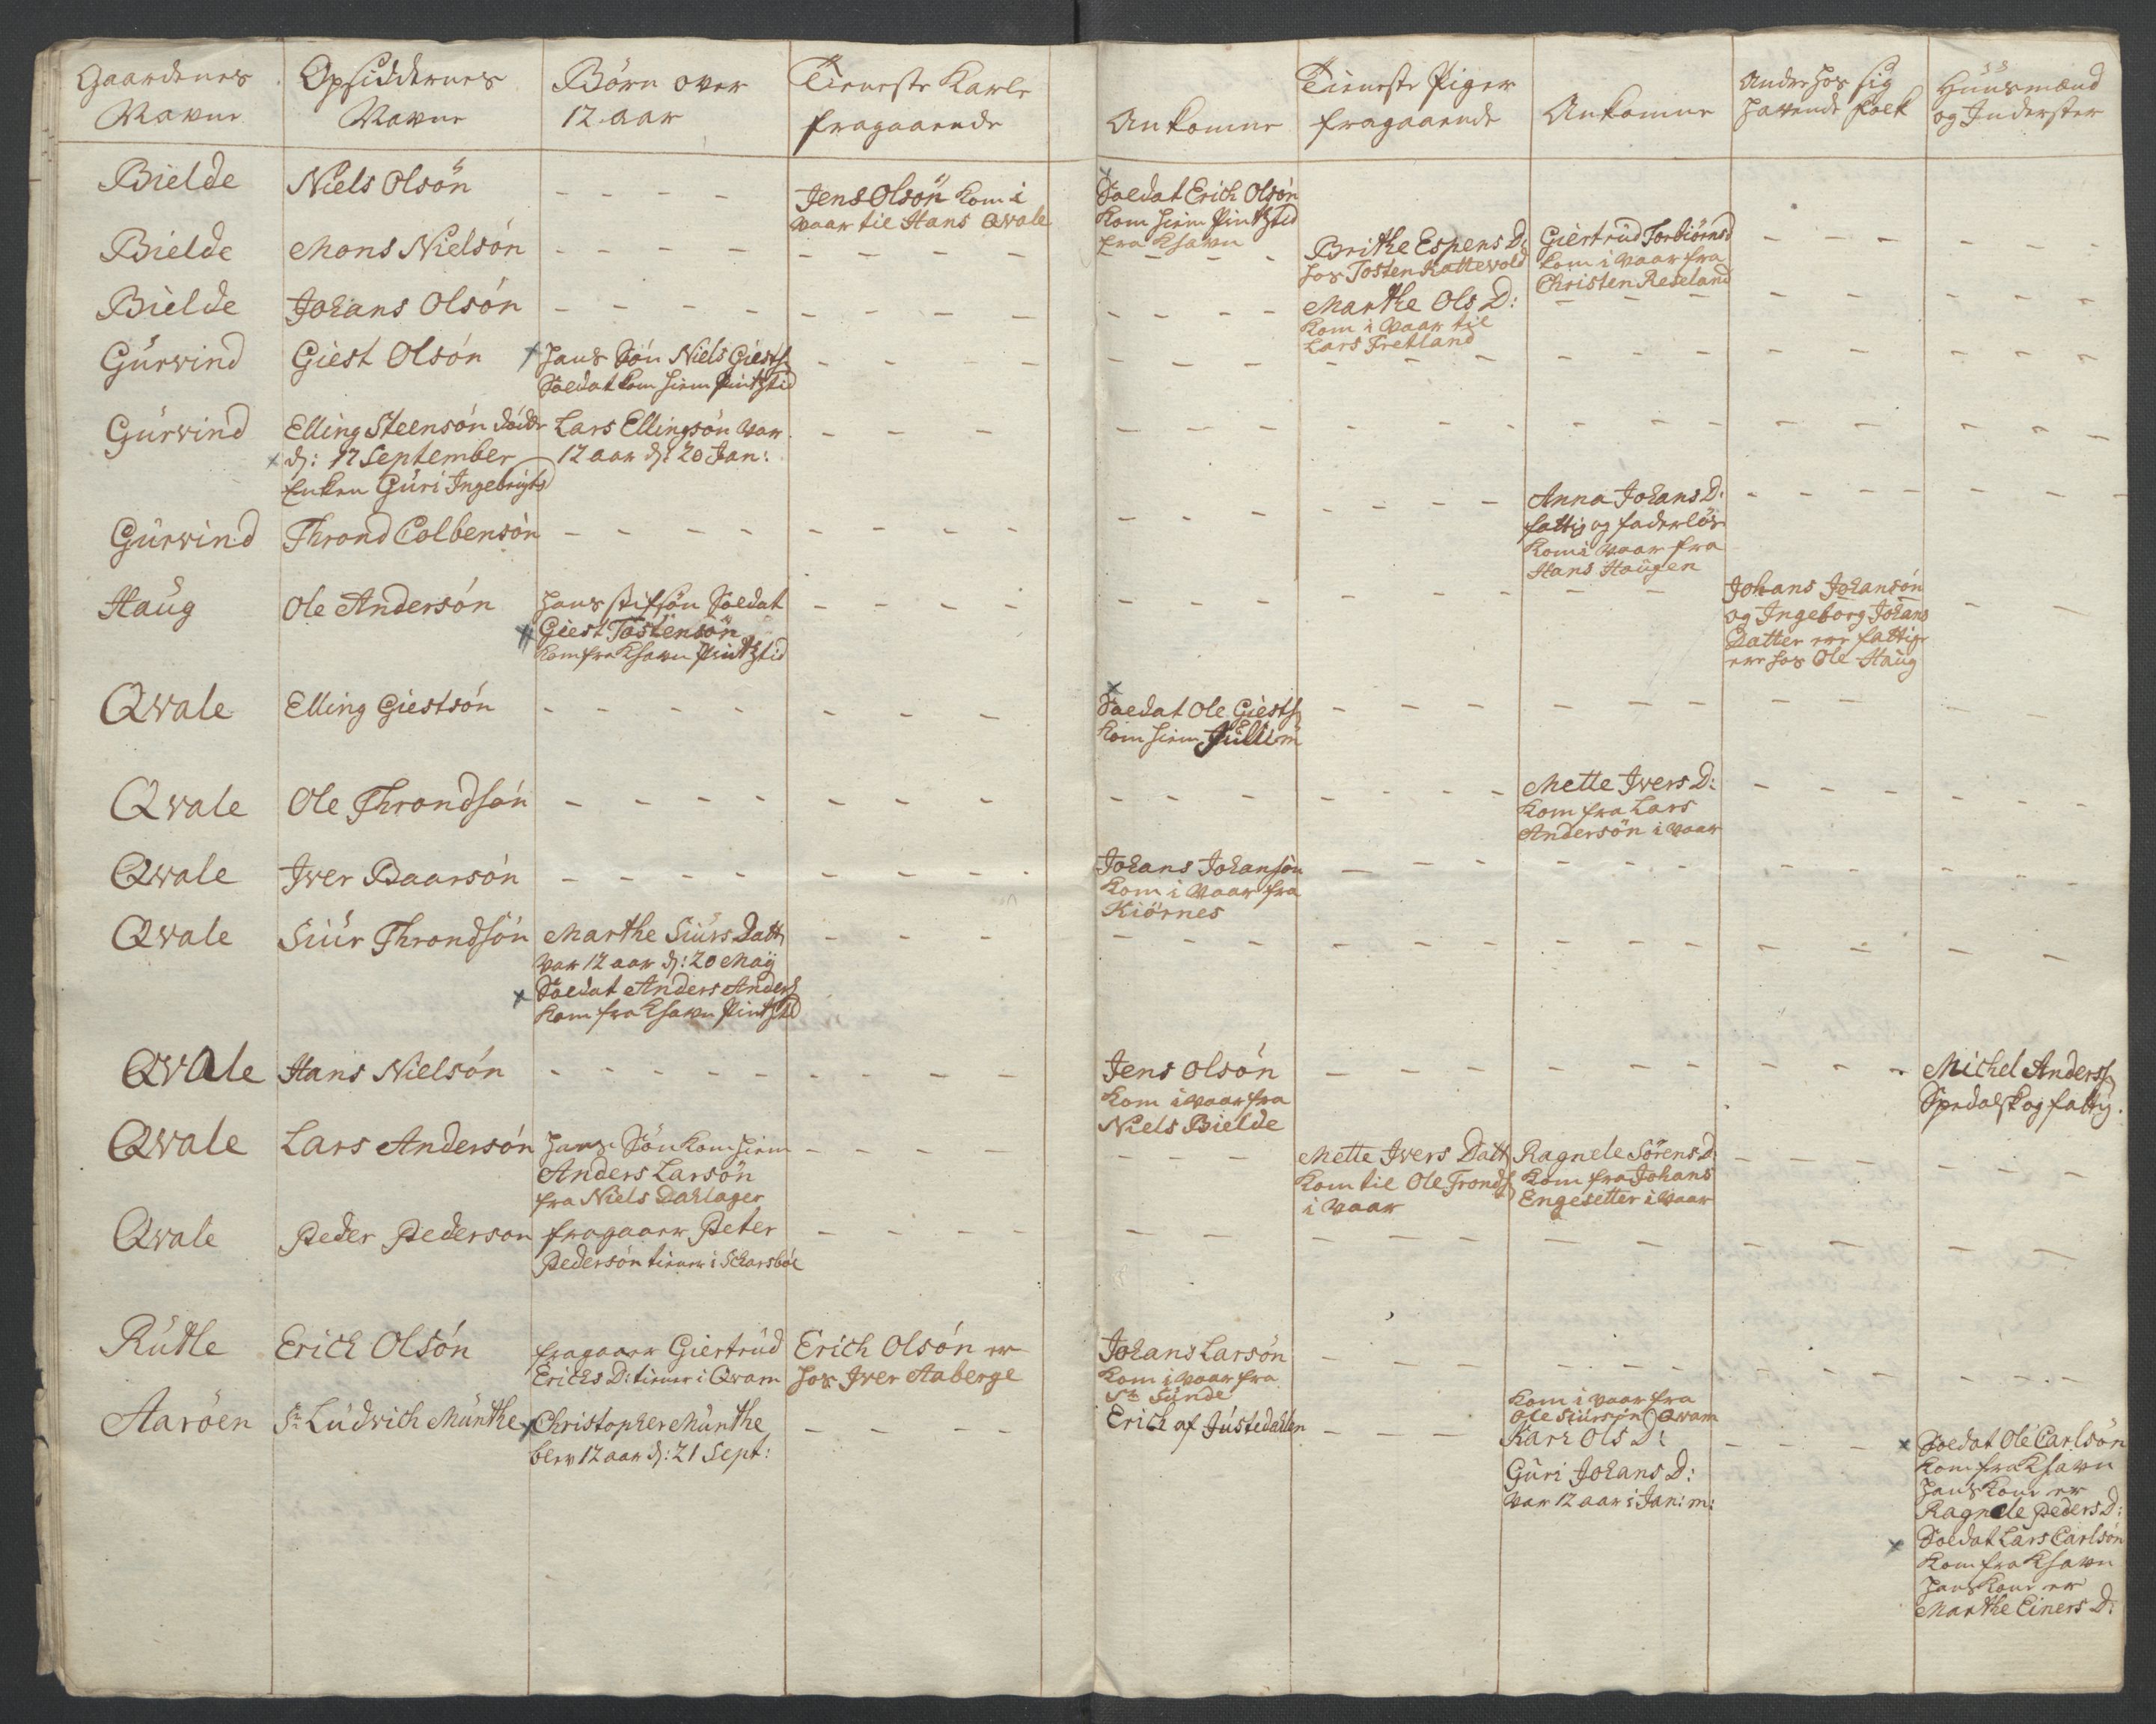 Gaardenes Navne
Opsiddernes Navne
Börn over 12 aar
Tieneste Karle fragaaende
Ankomne
Tieneste Piger fragaaende
Ankomne
Andre hos sig havende folk
Huusmænd og Inderster
Bielde
Niels Olsön
- - - -
Jens Olsön kom i
vaar til Hans Qvale
x
Soldat Erich Olsön
kom hiem Pintztid
fra Khavn
Bielde
Mons Nielsön
- - - -
Brithe Espens D:
hos Tosten Kattevold
Giertrüd Torbiörnsd
kom i vaar fra
Christen Reseland
Bielde
Johans Olsön
- - - -
Marthe Ols D:
kom i vaar til
Lars Fretland
Gürvind
Giest Olsön
x hans Sön Niels Giests
Soldat kom hiem Pintztid
Gürvind
Elling Steensön döde
x d: 17 September
Enken Güri Ingebrigts D
Lars Ellingsön var
12 aar d: 20 Jan:
Gürvind
Thrond Colbensön
- - - -
Anna Johans D:
fattig og faderlös
kom i vaar fra
Hans Haügen
Haüg
Ole Andersön
hans stifsön Soldat
x Giest Tostensön
kom fra Khavn Pintztid
Johans Johansön
og Ingeborg Johans
Datter ere fattige
ere hos Ole Haüg
Qvale
Elling Giestsön
- - - -
x
Soldat Ole Giests
kom hiem Jülii m
Qvale
Ole Throndsön
- - - -
Mette Ivers D:
kom fra Lars
Andersön i vaar
Qvale
Iver Baarsön
- - - -
Johans Johansön
kom i vaar fra
Kiörnes
Qvale
Siür Throndsön
Marthe Siürs Datt
var 12 aar d: 20 Maij
x Soldat Anders Anders
kom fra Khavn Pintztid
Qvale
Hans Nielsön
- - - -
Jens Olsön
kom i vaar fra
Niels Bielde
Michel Anders
Spedalsk og fattig.
Qvale
Lars Andersön
hans Sön kom hiem
Anders Larsön
fra Niels Dahlager
Mette Ivers Datt
kom til Ole Tronds
i vaar
Ragnele Sörens D
kom fra Johans
Engesetter i vaar
Qvale
Peder Pederson
fragaaer Peter
Pedersön tiener i Scharsböe
Rütle
Erich Olsön
fragaaer Giertrüd
Erichs D: tiener i Qvam
Erich Olsön er
hos Iver Aaberge
Johans Larsön
kom i vaar fra
Sr. Sünde
Aaröen
Sr. Lüdvich Münthe
x Christopher Münthe
blev 12 aar d: 21 Sept:
Erich af Jüstedahlen
kom i vaar fra
Ole Siürsön Qvam
Kari Ols D:
Güri Johans D:
var 12 aar i Jan: m:
x Soldat Ole Carlsön
kom fra Khavn
hans kone er
Ragnele Peders D:
x Soldat Lars Carlsön
kom fra Khavn
hans kone er
Marthe Einers D: